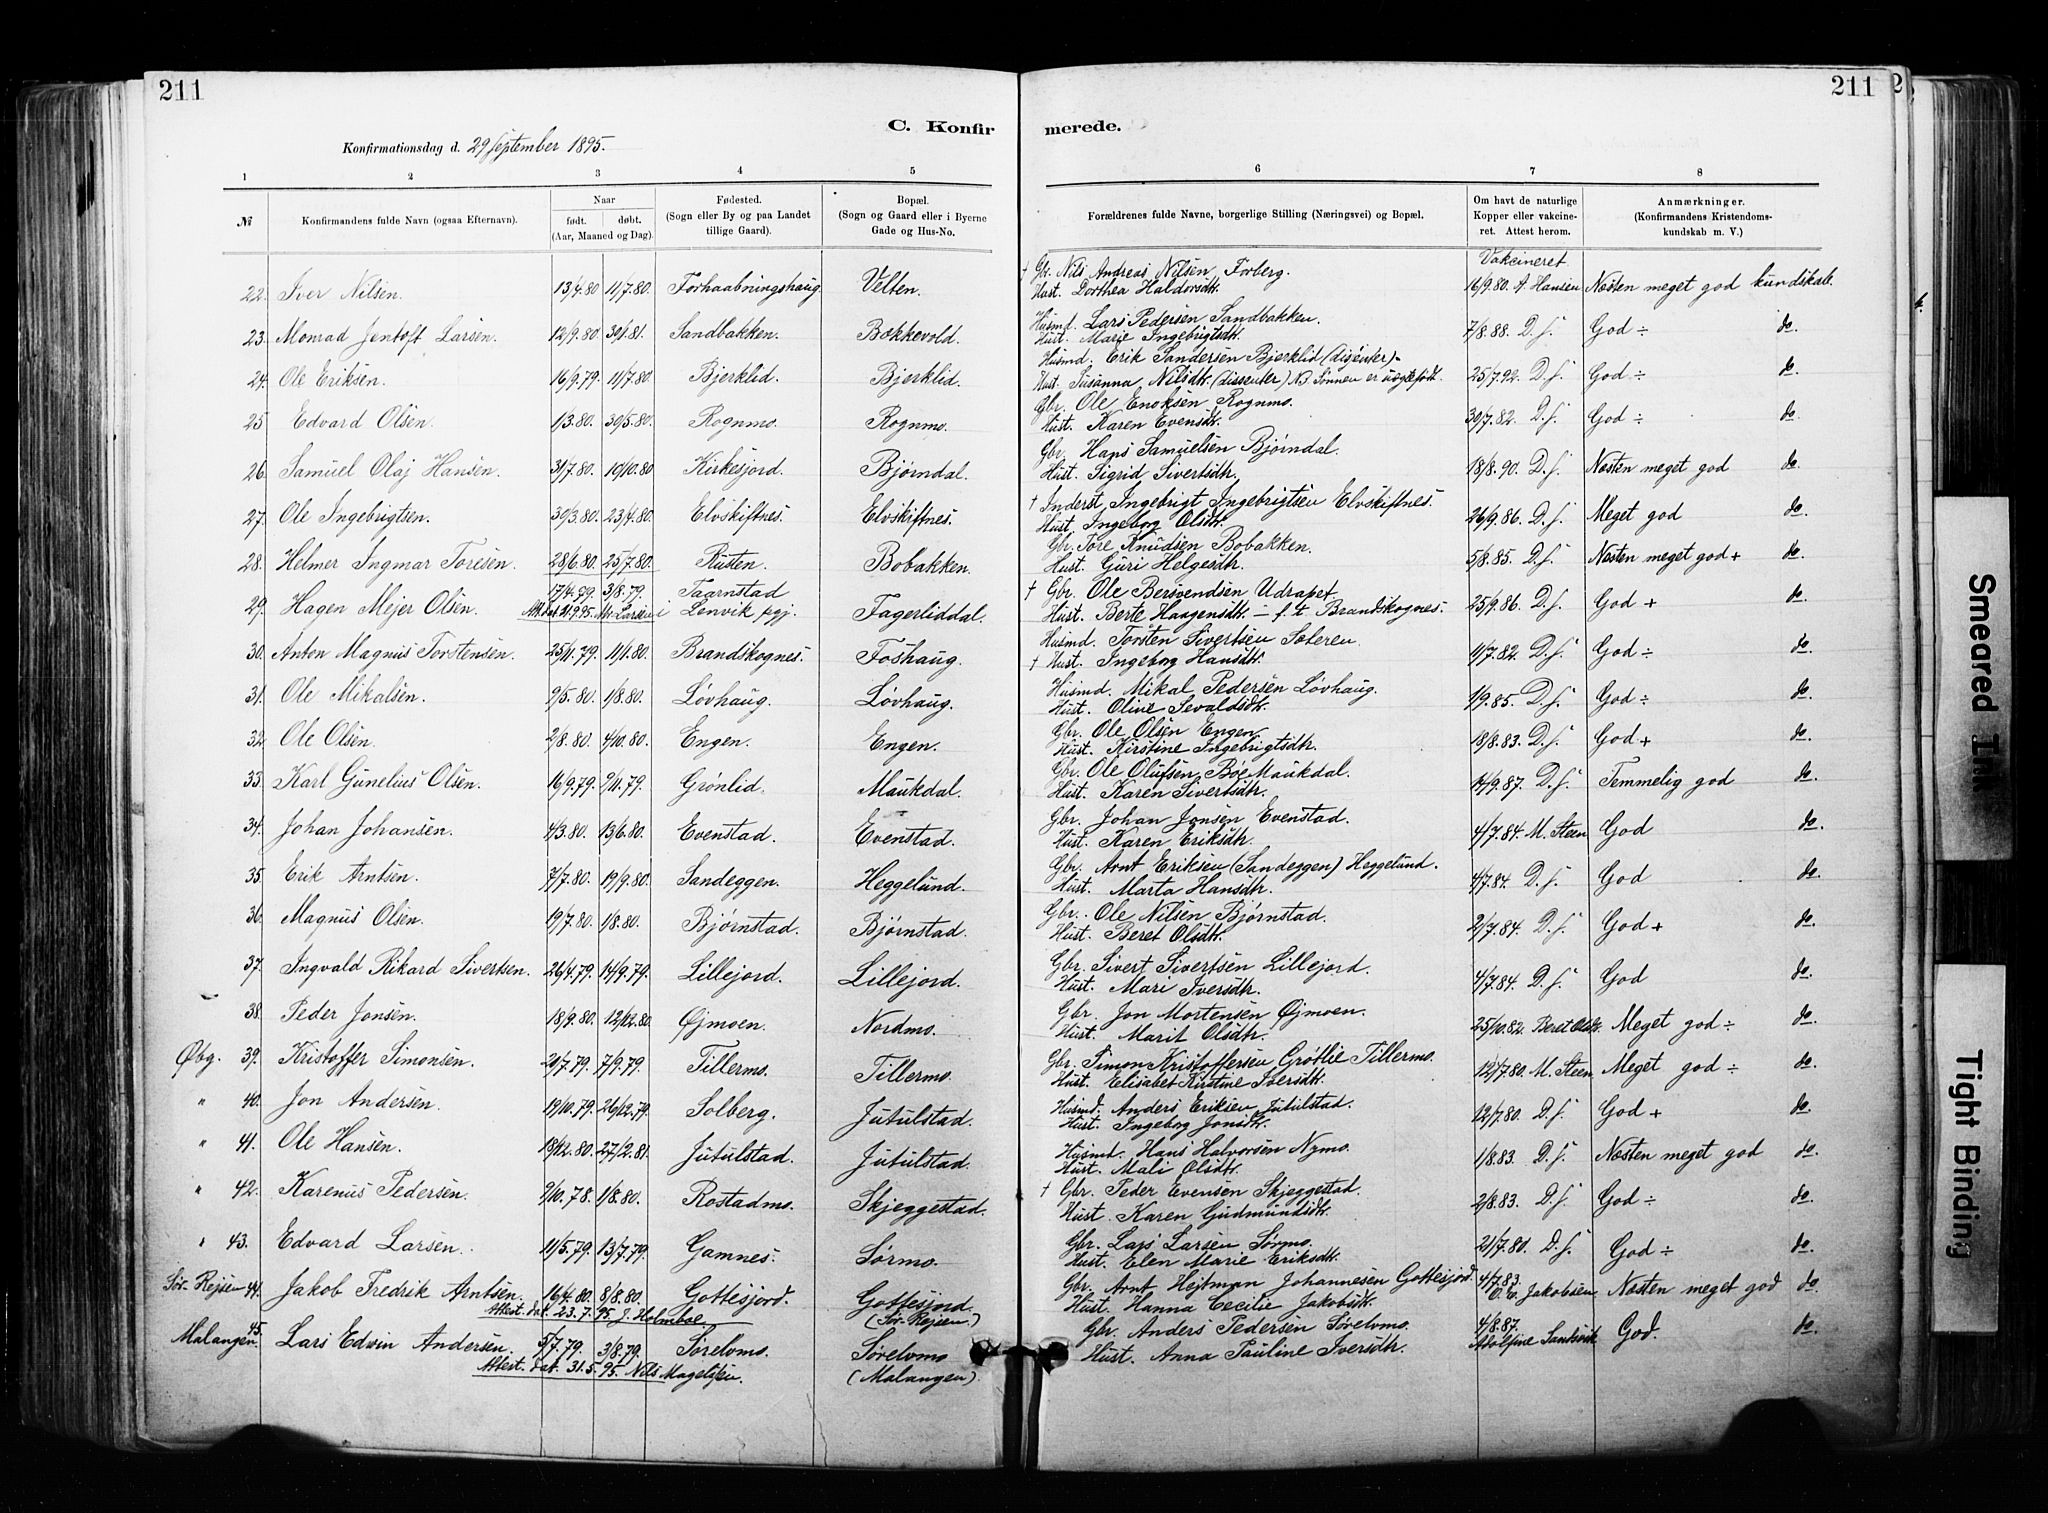 211
211
C. Konfir
merede.
Konfirmationsdag d. 29 September 1895.
1 2 3 4 5 6 7 8
№
Konfirmandens fulde Navn (ogsaa Efternavn).
Naar
født. døbt.
(Aar, Maaned og Dag).
Fødested.
(Sogn eller By og paa Landet
tillige Gaard).
Bopæl.
(Sogn og Gaard eller i Byerne
Gade og Hus-No.
Forældrenes fulde Navne, borgerlige Stilling (Næringsvei) og Bopæl.
Om havt de naturlige
Kopper eller vakcine-
ret. Attest herom.
Anmærkninger.
(Konfirmandens Kristendoms-
kundskab m. V.)
Vakcineret
22. Iver Nilsen. 13/4.80 11/7.80. Forhaabningshaug Velten. † Gb. Nils Andreas Nilsen Forberg.
Hust. Dorthea Haldorsdtr. 16/9.80. A. Hansen Næsten meget god kundskab.
23. Monrad Jentoft Larsen. 12/9.80 30/1.81. Sandbakken. Bækkevold. Husmd. Lars Pedersen Sandbakken.
Hust. Marie Ingebrigtsdtr. 7/8.88. D.s. God ÷ do.
24. Ole Eriksen. 16/9.79. 11/7.80. Bjerklid. Bjerklid. Husmd. Erik Sandersen Bjerklid (disenter) -
Hust. Susanna Nilsdtr. (dissenter) NB Sønnen er uægtefødt. 25/7.92. D.s. God ÷ do.
25 Edvard Olsen. 1/3.80. 30/5.80. Rognmo. Rognmo. Gbr. Ole Enoksen Rognmo.
Hust. Karen Evensdtr. 30/7.82. D.s. God ÷ do.
26. Samuel Olaj Hansen. 31/7.80. 10/10.80 Kirkesjord. Bjørndal. Gbr. Hans Samuelsen Bjørndal.
Hust. Sigrid Sivertsdtr. 18/8.90. D.s. Næsten meget god do.
27. Ole Ingebrigtsen. 30/3.80. 23/4.80. Elvskiftnes. Elvskiftnes. † Inderst Ingebrigt Ingebrigtsen Elvskiftnes.
Hust. Ingeborg Olsdtr. 26/9.86. D.s. Meget god do.
28. Helmer Ingmar Toresen. 28/6.80. 25/7.80. Rusten. Bobakken. Gbr. Tore Knudsen Bobakken.
Hust. Guri Helgesdtr. 5/8.85. D.s. Næsten meget god + do.
29. Hagen Mejer Olsen. 17/4.79. 3/8.79. Taarnstad
Att. dat. 21.9.95. Lenvik pgj. Fagerliddal. † Gbr. Ole Bersvendsen Udrapet
Hust. Berte Haagensdtr. - f. t. Brandskognes. 25/9.86. D.s. God + do.
30. Anton Magnus Torstensen. 25/11.79. 11/1.80. Brandskognes. Foshaug. Husmd. Torsten Sivertsen Søteren
† Hust. Ingeborg Hansdtr. 11/7.82. D.s. God ÷ do.
31. Ole Mikalsen. 9/5.80. 1/8.80. Løvhaug. Løvhaug. Husmd. Mikal Pedersen Løvhaug.
Hust. Oline Sevaldsdtr. 1/9.85. D.s. God ÷ do.
32. Ole Olsen. 2/8.80. 4/10.80. Engen. Engen. Gbr. Ole Olsen Engen
Hust. Kirstine Ingebrigtsdtr. 18/8.83. D.s. God + do.
33. Karl Gunelius Olsen. 16/9.79. 9/11.79. Grønlid. Maukdal. Gbr. Ole Olufsen Bøe Maukdal.
Hust. Karen Sivertsdtr. 14/9.87. D.s. Temmelig god do.
34. Johan Johansen. 4/3.80. 13/6.80. Evenstad. Evenstad. Gbr. Johan Jonsen Evenstad.
Hust. Karen Eriksdtr. 4/7.84. M. Steen God do.
35. Erik Arntsen. 7/7.80. 19/9.80. Sandeggen. Heggelund. Gbr. Arnt Eriksen (Sandeggen) Heggelund.
Hust. Marta Hansdtr. 4/7.84. D.s. God do.
36. Magnus Olsen. 19/7.80. 1/8.80. Bjørnstad. Bjørnstad. Gbr. Ole Nilsen Bjørnstad.
Hust. Beret Olsdtr. 2/7.84. D.s. God + do.
37. Ingvald Rikard Sivertsen. 26/4.79. 14/9.79. Lillejord. Lillejord. Gbr. Sivert Sivertsen Lillejord.
Hust. Mari Iversdtr. 4/7.84. D.s. God do.
38. Peder Jonsen. 18/9.80. 12/12.80 Øjmoen. Nordmo. Gbr. Jon Mortensen Øjmoen.
Hust. Marit Olsdtr. 25/10.82. Beret Olsdtr. Meget god ÷ do.
Øbg. 39. Kristoffer Simonsen. 20/7.79. 7/9.79. Tillermo. Tillermo. Gbr. Simon Kristoffersen Grøtlie Tillermo.
Hust. Elisabet Kirstine Iversdtr. 12/7.80. M. Steen Meget god ÷ do.
" 40. Jon Andersen. 19/10.79. 26/12.79. Solberg. Jutulstad. Husmd. Anders Eriksen Jutulstad.
Hust. Ingeborg Jonsdtr. 12/7.80. D.s. God + do.
" 41. Ole Hansen. 18/12.80. 27/2.81. Jutulstad. Jutulstad. Husmd. Hans Halvorsen Nymo.
Hust. Mali Olsdtr. 1/8.83. D.s. Næsten meget god do.
" 42. Karenus Pedersen. 9/10.78. 1/8.80. Rostadmo. Skjeggestad. † Gbr. Peder Evensen Skjeggestad.
Hust. Karen Gudmundsdtr. 2/8.83. D.s. God ÷ do.
" 43. Edvard Larsen. 11/5.79. 13/7.79. Gamnes. Sørmo. Gbr. Lars Larsen Sørmo.
Hust. Elen Marie Eriksdtr. 21/7.80. D.s. God ÷ do.
Sør-Rejsen 44. Jakob Fredrik Arntsen. 16/4.80. 8/8.80. Gottesjord. Gottesjord
Attest. dat. 23.7.95. J. Holmboe (Sør-Rejsen.) Gbr. Arnt Hejtman Johannesen Gottesjord.
Hust. Hanna Cecilie Jakobsdtr. 4/7.83. Jakobsen Næsten meget god do.
Malangen 45. Lars Edvin Andersen. 5/7.79. 3/8.79. Sørelvmo. Sørelvmo
Attest. dat. 31.5.95. Nils Magelssen. (Malangen). Gbr. Anders Pedersen Sørelvmo.
Hust. Anna Pauline Iversdtr. 4/8.87. Adolfine God. do.
Smeared Ink
Tight Binding